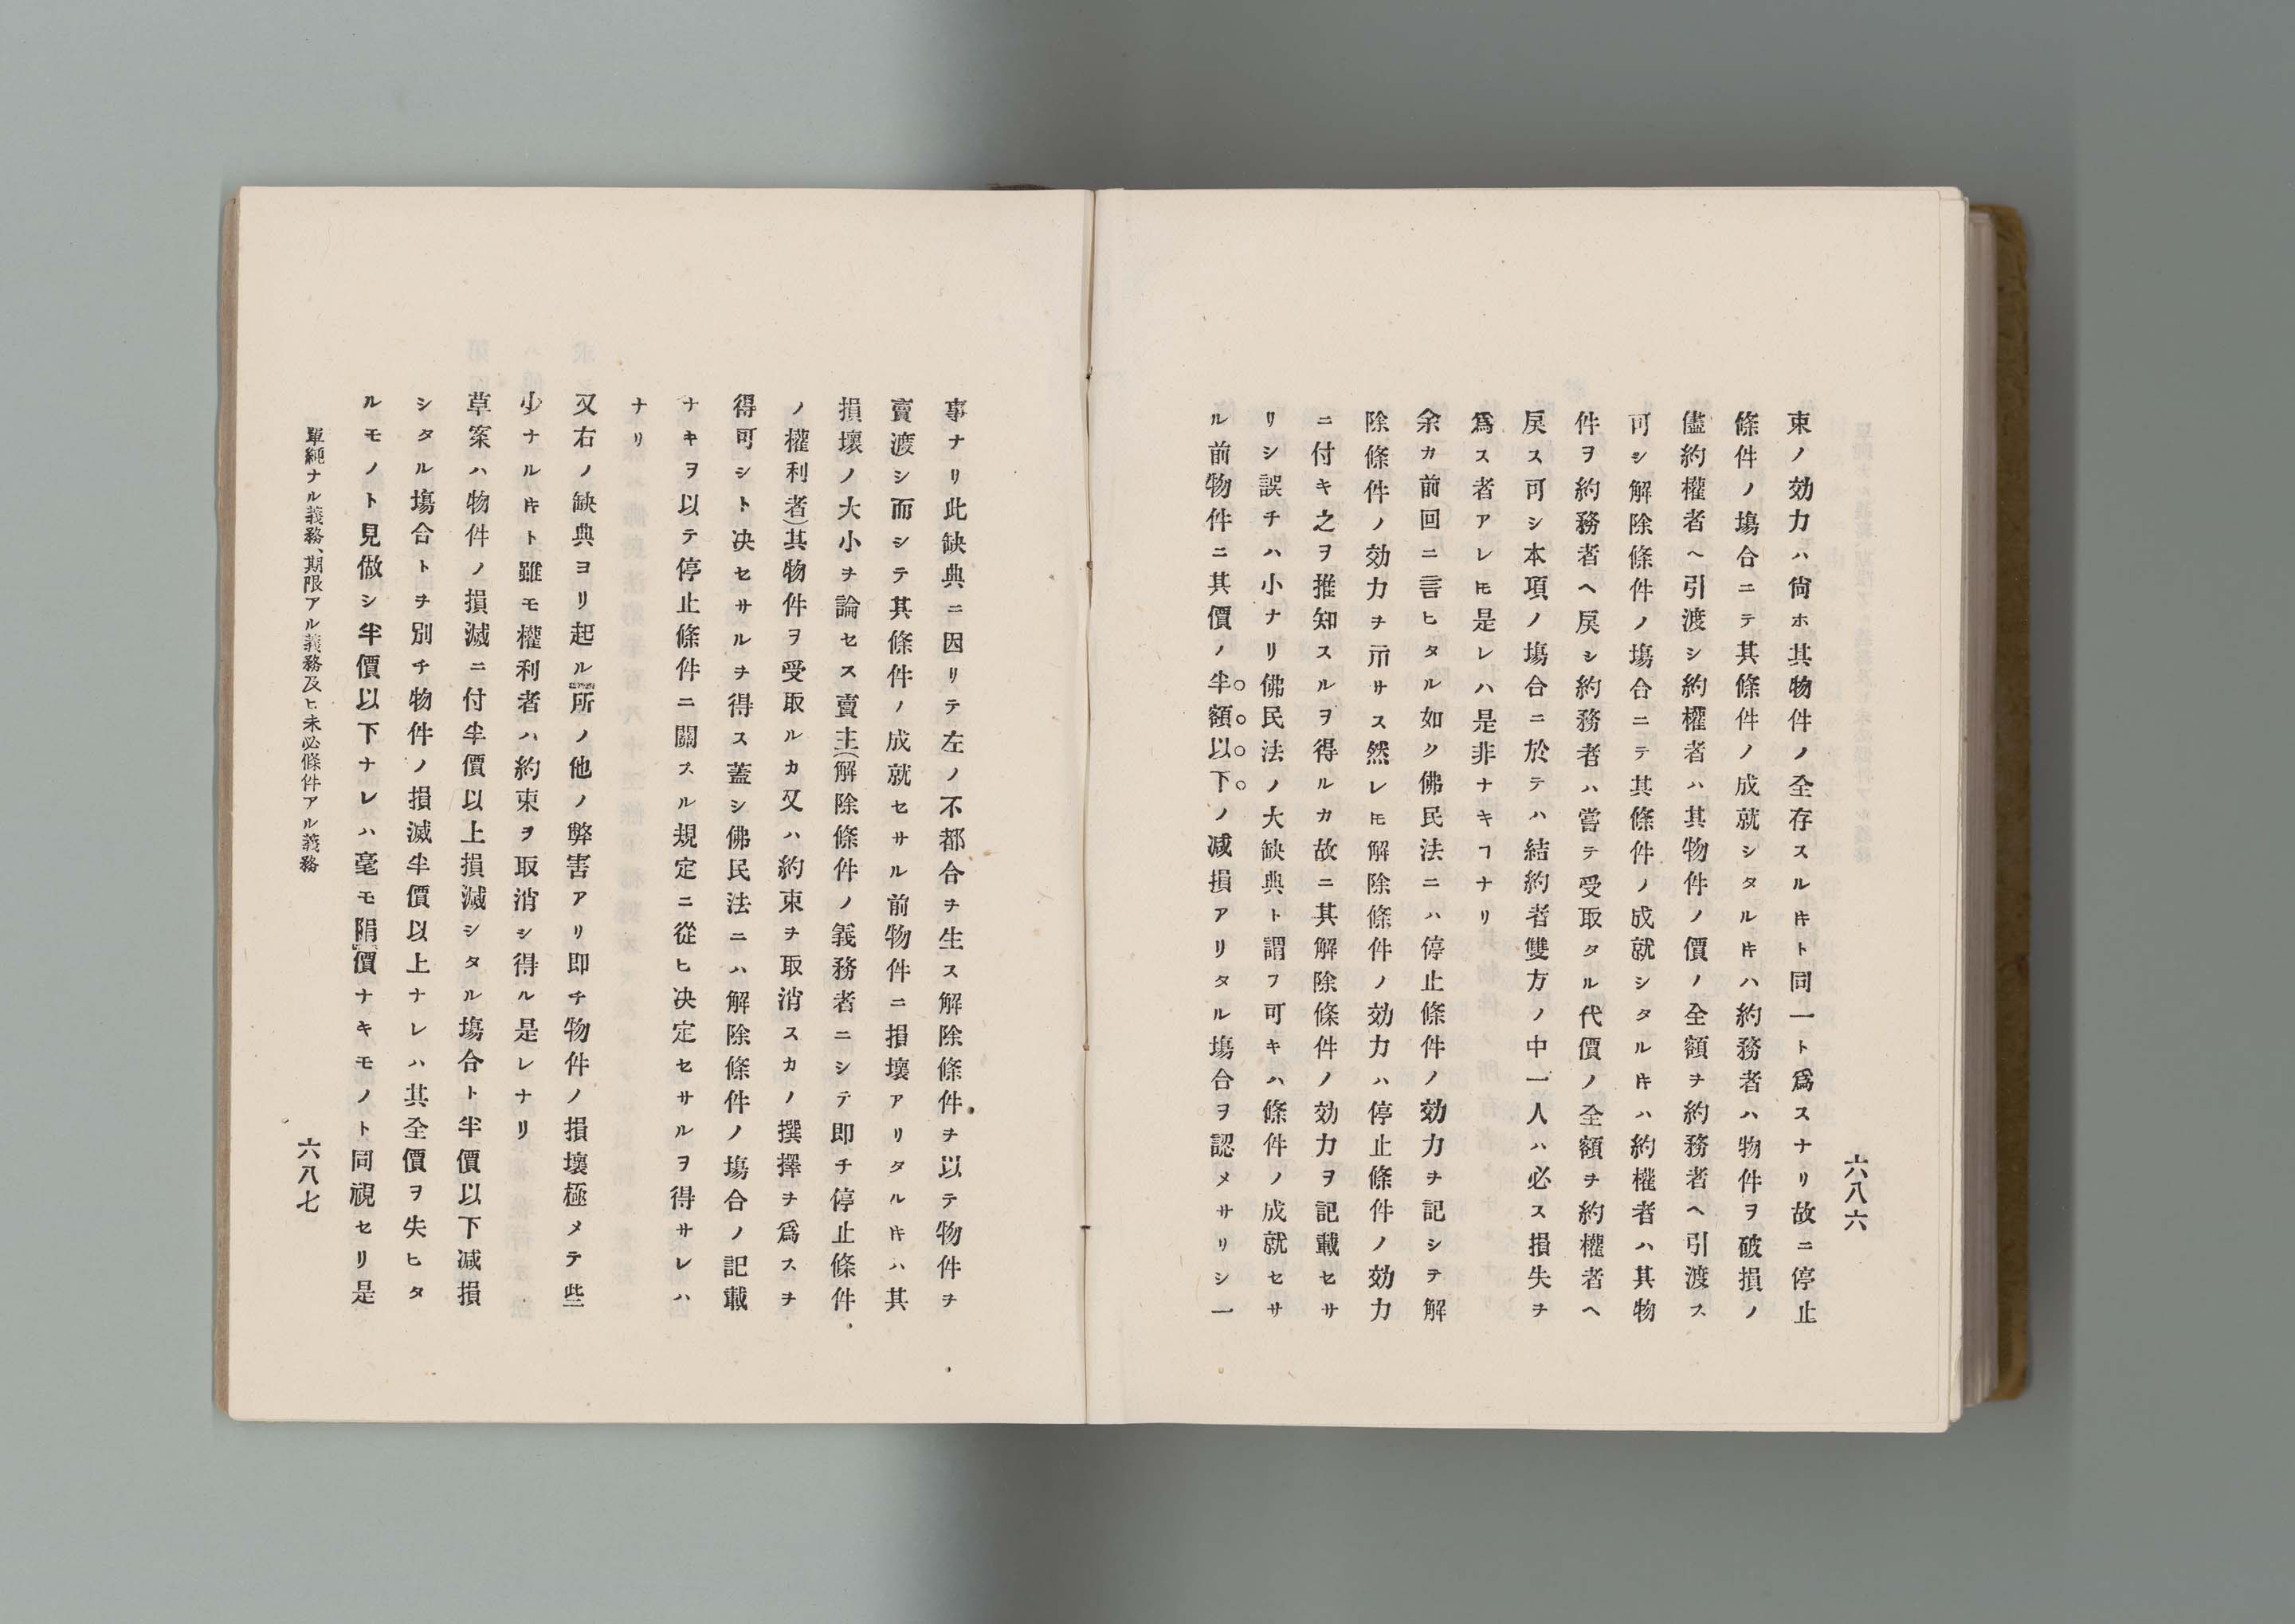 六八六
束ノ効力ハ尙ホ其物件ノ全存スルㇳキト同一ト爲スナリ故ニ停止
條件ノ塲合ニテ其條件ノ成就シタルㇳキハ約務者ハ物件ヲ破損ノ
儘約權者ヘ引渡シ約權者ハ其物件ノ價ノ全額ヲ約務者ヘ引渡ス
可シ解除條件ノ塲合ニテ其條件ノ成就シタルㇳキハ約權者ハ其物
件ヲ約務者ヘ戾シ約務者ハ嘗テ受取タル代價ノ全額ヲ約權者ヘ
戾ス可シ本項ノ塲合ニ於テハ結約者雙方ノ中一人ハ必ス損失ヲ
爲ス者アレㇳモ是レハ是非ナキヿナリ
余カ前回ニ言ヒタル如ク佛民法ニハ停止條件ノ効力ヲ記シテ解
除條件ノ効力ヲ示サス然レㇳモ解除條件ノ効力ハ停止條件ノ効力
ニ付キ之ヲ推知スルヲ得ルカ故ニ其解除條件ノ効力ヲ記載セサ
リシ誤チハ小ナリ佛民法ノ大缺典ト謂フ可キハ條件ノ成就セサ
ル前物件ニ其價ノ半額以下ノ減損アリタル塲合ヲ認メサリシ一
事ナリ此缺典ニ因リテ左ノ不都合ヲ生ス解除條件ヲ以テ物件ヲ
賣渡シ而シテ其條件ノ成就セサル前物件ニ損壞アリタルㇳキハ其
損壞ノ大小ヲ論セス賣主(解除條件ノ義務者ニシテ即チ停止條件
ノ權利者)其物件ヲ受取ルカ又ハ約束ヲ取消スカノ撰擇ヲ爲スヲ
得可シト决セサルヲ得ス蓋シ佛民法ニハ解除條件ノ塲合ノ記載
ナキヲ以テ停止條件ニ關スル規定ニ從ヒ决定セサルヲ得サレハ
ナリ
又右ノ缺典ヨリ起ル所ノ他ノ弊害アリ即チ物件ノ損壞極メテ些
少ナルㇳキト雖モ權利者ハ約束ヲ取消シ得ル是レナリ
草案ハ物件ノ損滅ニ付半價以上損滅シタル塲合ト半價以下減損
シタル塲合トヲ別チ物件ノ損滅半價以上ナレハ其全價ヲ失ヒタ
ルモノト見做シ半價以下ナレハ毫モ損價ナキモノト同視セリ是
單純ナル義務、期限アル義務及ヒ未必條件アル義務
六八七